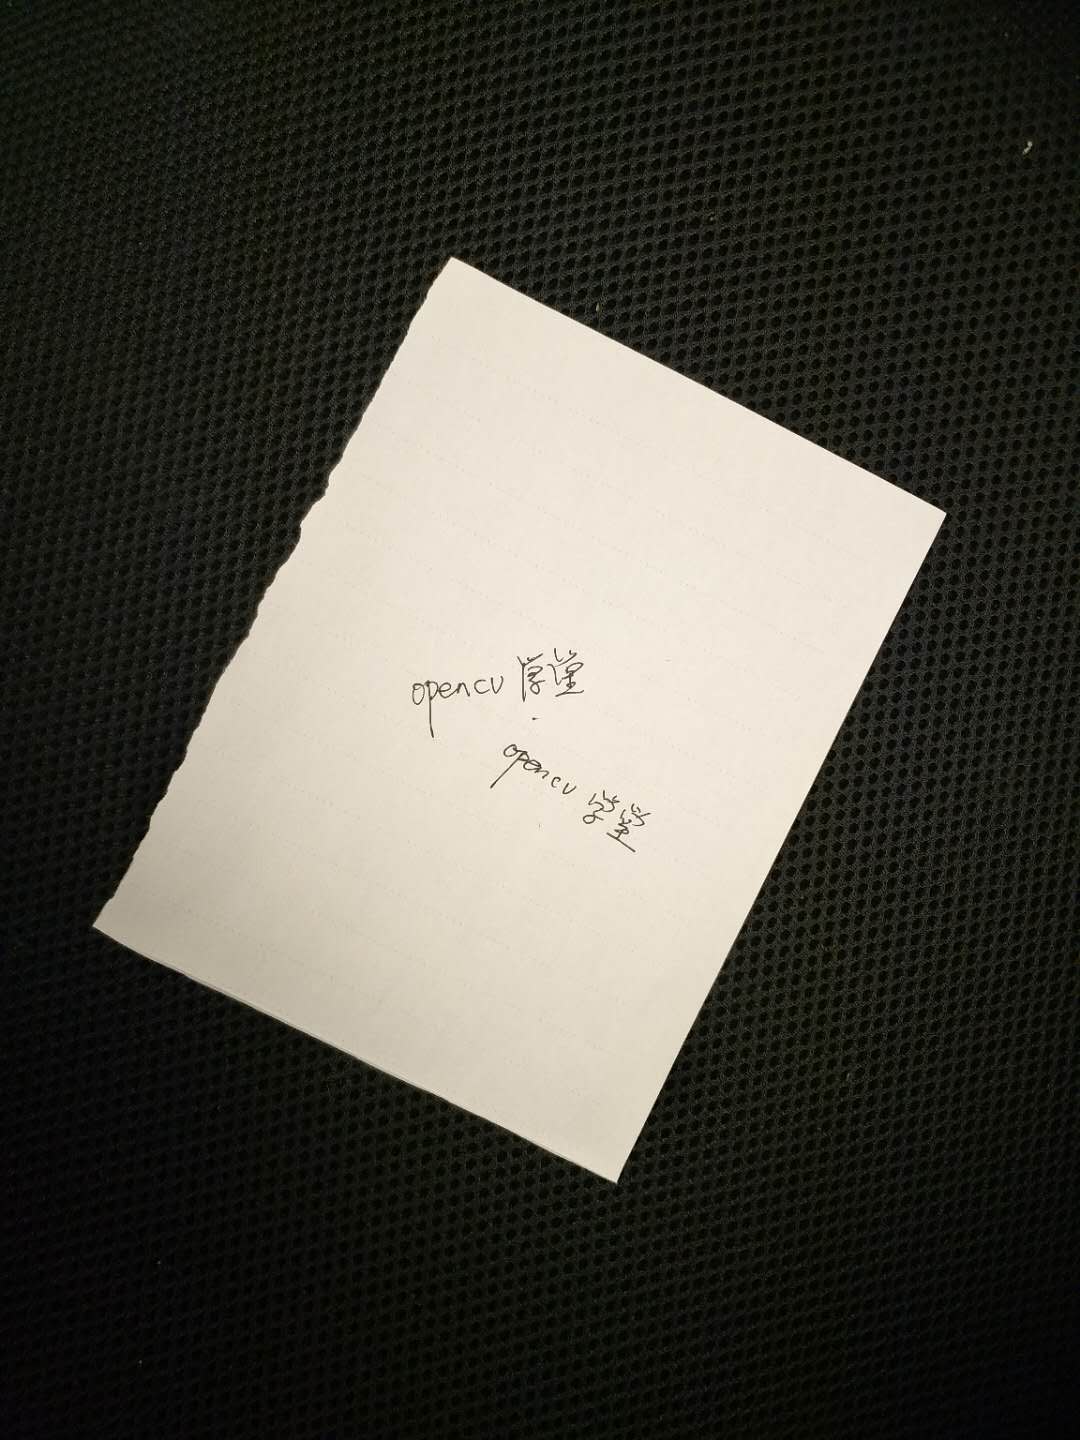 opencv 学堂
opencv 学堂